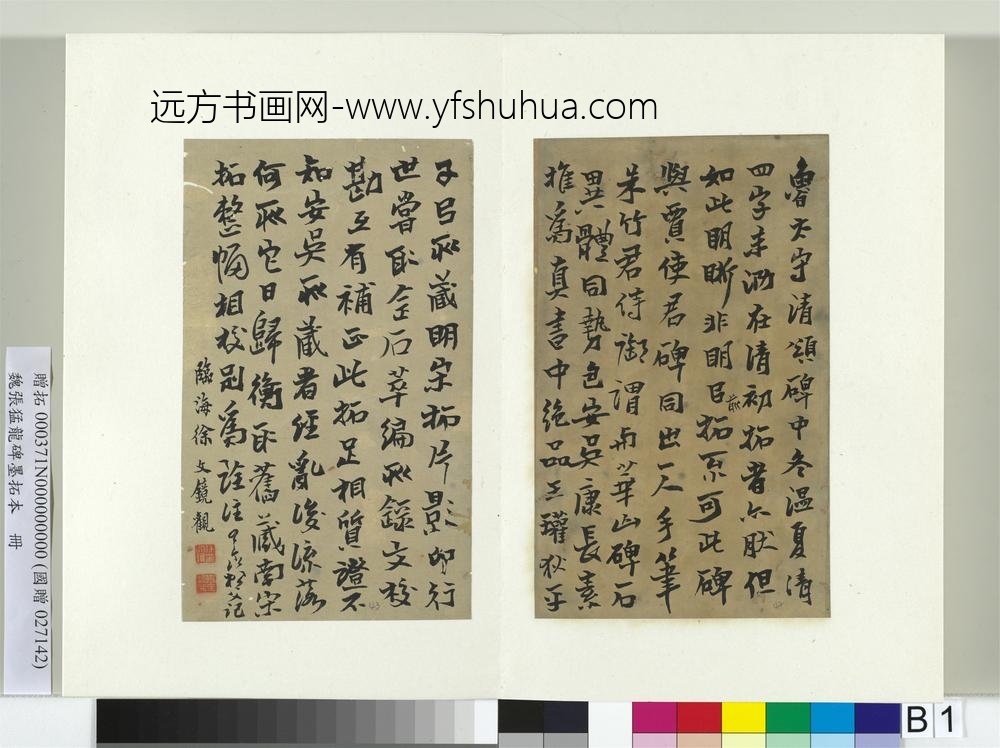 远方书画网-www.yfshuhua.com
魯太守清頌碑中冬溫夏清
四字未泐在清初拓者亦然但
如此明晰非明以前拓不可此碑
與賈使君碑同出一人手筆
朱竹君侍御謂與華山碑石
異體同勢包安吳康長素
推為真書中絕品
子 所藏明宋拓片影印行
世嘗取金石萃編所錄文校
勘互有補正此拓足相質證不
知安吳所藏者經亂後流落
何所它日歸衡取舊藏南宋
拓整幅相校別為詮注
臨海徐文鏡觀
贈拓 000371N000000000 (國贈 027142)
魏張猛龍碑墨拓本 冊
43
42
B 1